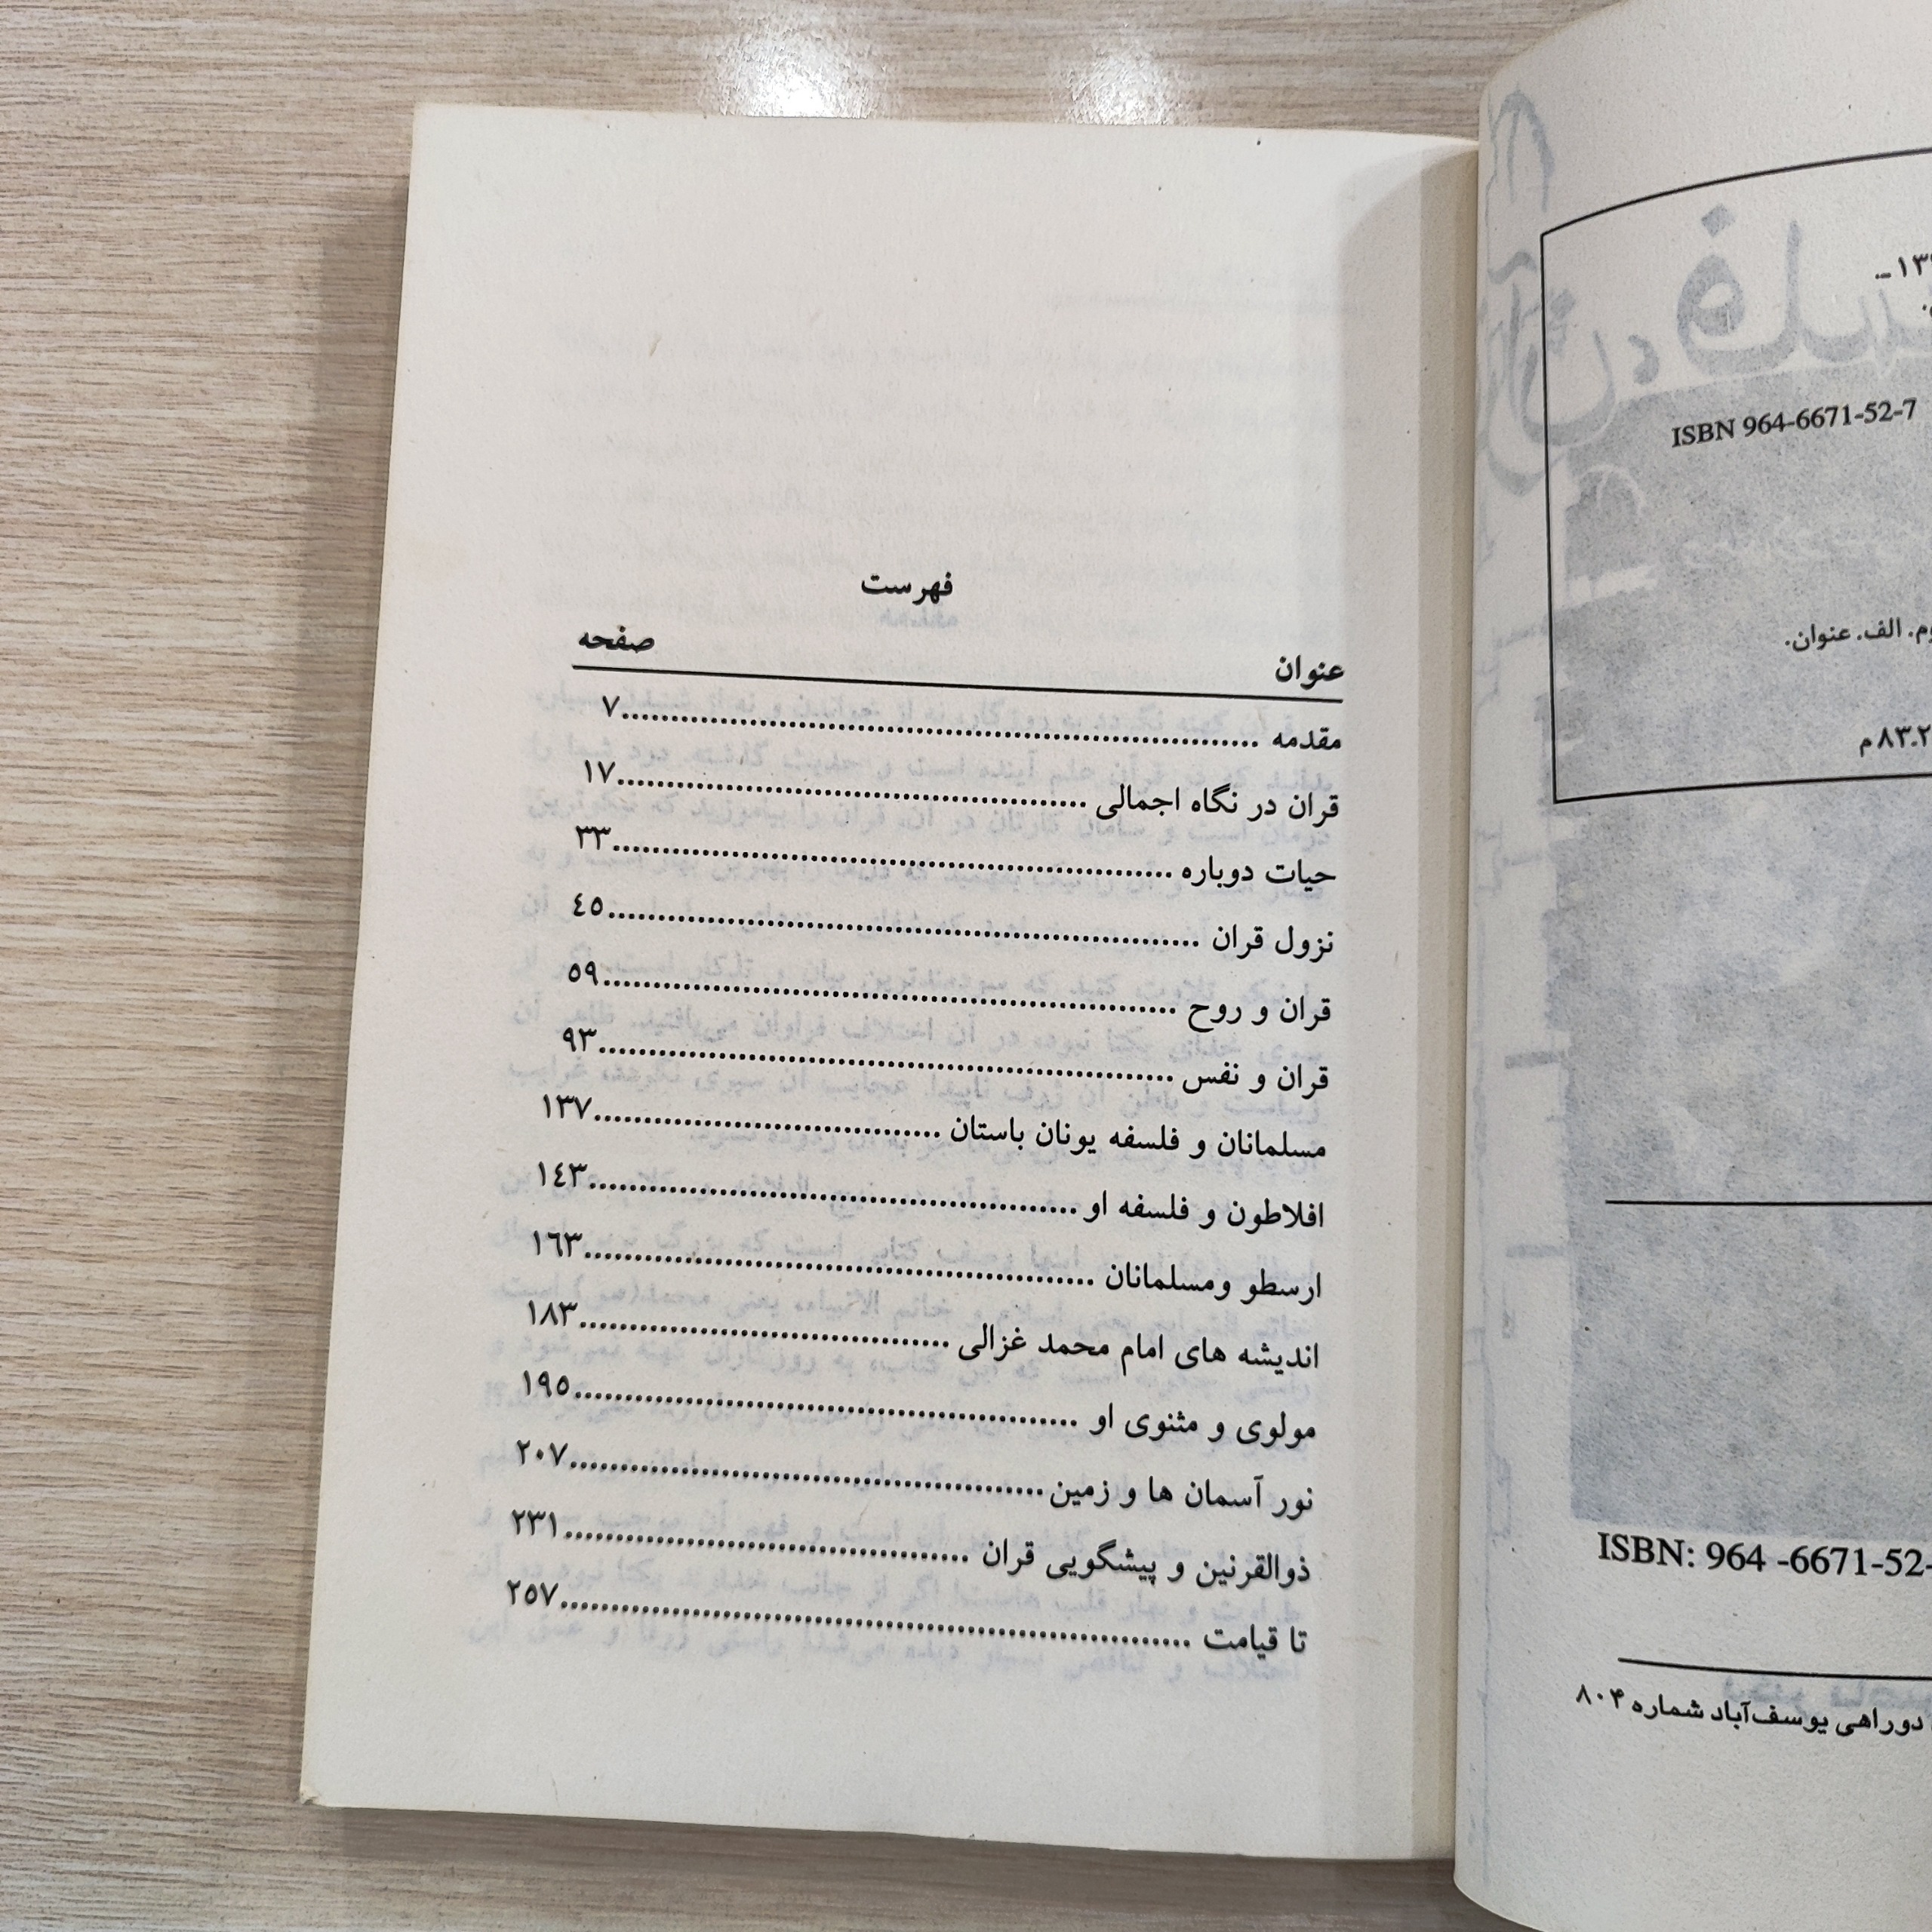 فهرست
عنوان صفحه
مقدمه ........ ۷
قران در نگاه اجمالی ........ ۱۷
حیات دوباره ........ ۳۳
نزول قران ........ ٤٥
قران و روح ........ ٥۹
قران و نفس ........ ۹۳
مسلمانان و فلسفه یونان باستان ........ ۱۳۷
افلاطون و فلسفه او ........ ۱٤۳
ارسطو ومسلمانان ........ ۱٦۳
اندیشه های امام محمد غزالی ........ ۱۸۳
مولوی و مثنوی او ........ ۱۹٥
نور آسمان ها و زمین ........ ۲۰۷
ذوالقرنین و پیشگویی قران ........ ۲۳۱
تا قیامت ........ ۲٥۷
ISBN 964-6671-52-7
الف. عنوان.
۸۳ـ۲ م
ISBN: 964 -6671-52-
دوراهی یوسف‌آباد شماره ۸۰۴